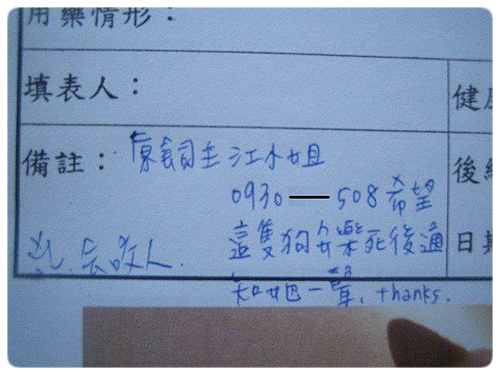 用藥情形：
填表人：
健
備註：原飼主江小姐
後
0930 508希望
這隻狗安樂死後通
日
知她一聲, thanks.
兇.會咬人.